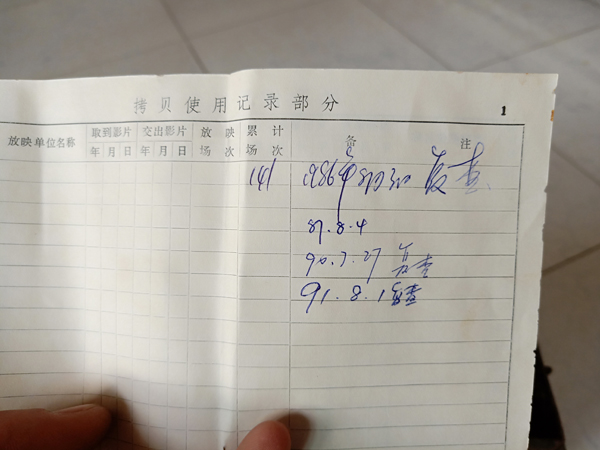 拷贝使用记录部分 1
放映单位名称 取到影片 交出影片 放映 累计 备注
年 月 日 年 月 日 场次 场次
141 1986年 复查
87.8.4
90.7.27 复查
91.8.1 复查